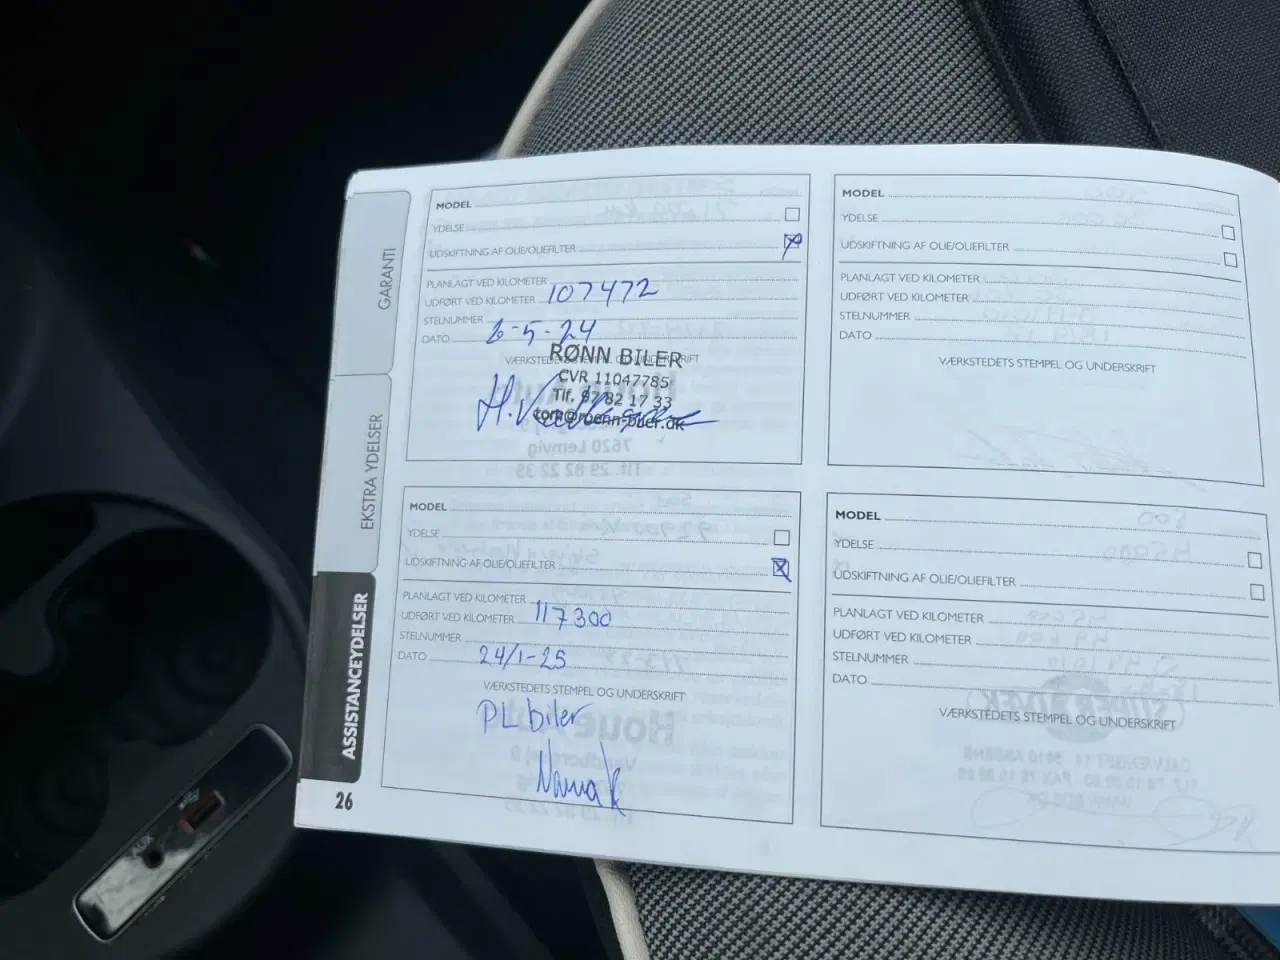 GARANTI
EKSTRA YDELSER
ASSISTANCEYDELSER
26
MODEL
YDELSE
UDSKIFTNING AF OLIE/OLIEFILTER
PLANLAGT VED KILOMETER
UDFØRT VED KILOMETER 107472
STELNUMMER
DATO 2-5-24
VÆRKSTEDETS STEMPEL OG UNDERSKRIFT
RØNN BILER
CVR 11047785
Tlf. 97 82 17 33
tom@roenn-biler.dk
MODEL
YDELSE
UDSKIFTNING AF OLIE/OLIEFILTER
PLANLAGT VED KILOMETER
UDFØRT VED KILOMETER 117300
STELNUMMER
DATO 24/1-25
VÆRKSTEDETS STEMPEL OG UNDERSKRIFT
PL biler
MODEL
YDELSE
UDSKIFTNING AF OLIE/OLIEFILTER
PLANLAGT VED KILOMETER
UDFØRT VED KILOMETER
STELNUMMER
DATO
VÆRKSTEDETS STEMPEL OG UNDERSKRIFT
MODEL
YDELSE
UDSKIFTNING AF OLIE/OLIEFILTER
PLANLAGT VED KILOMETER
UDFØRT VED KILOMETER
STELNUMMER
DATO
VÆRKSTEDETS STEMPEL OG UNDERSKRIFT
AUX